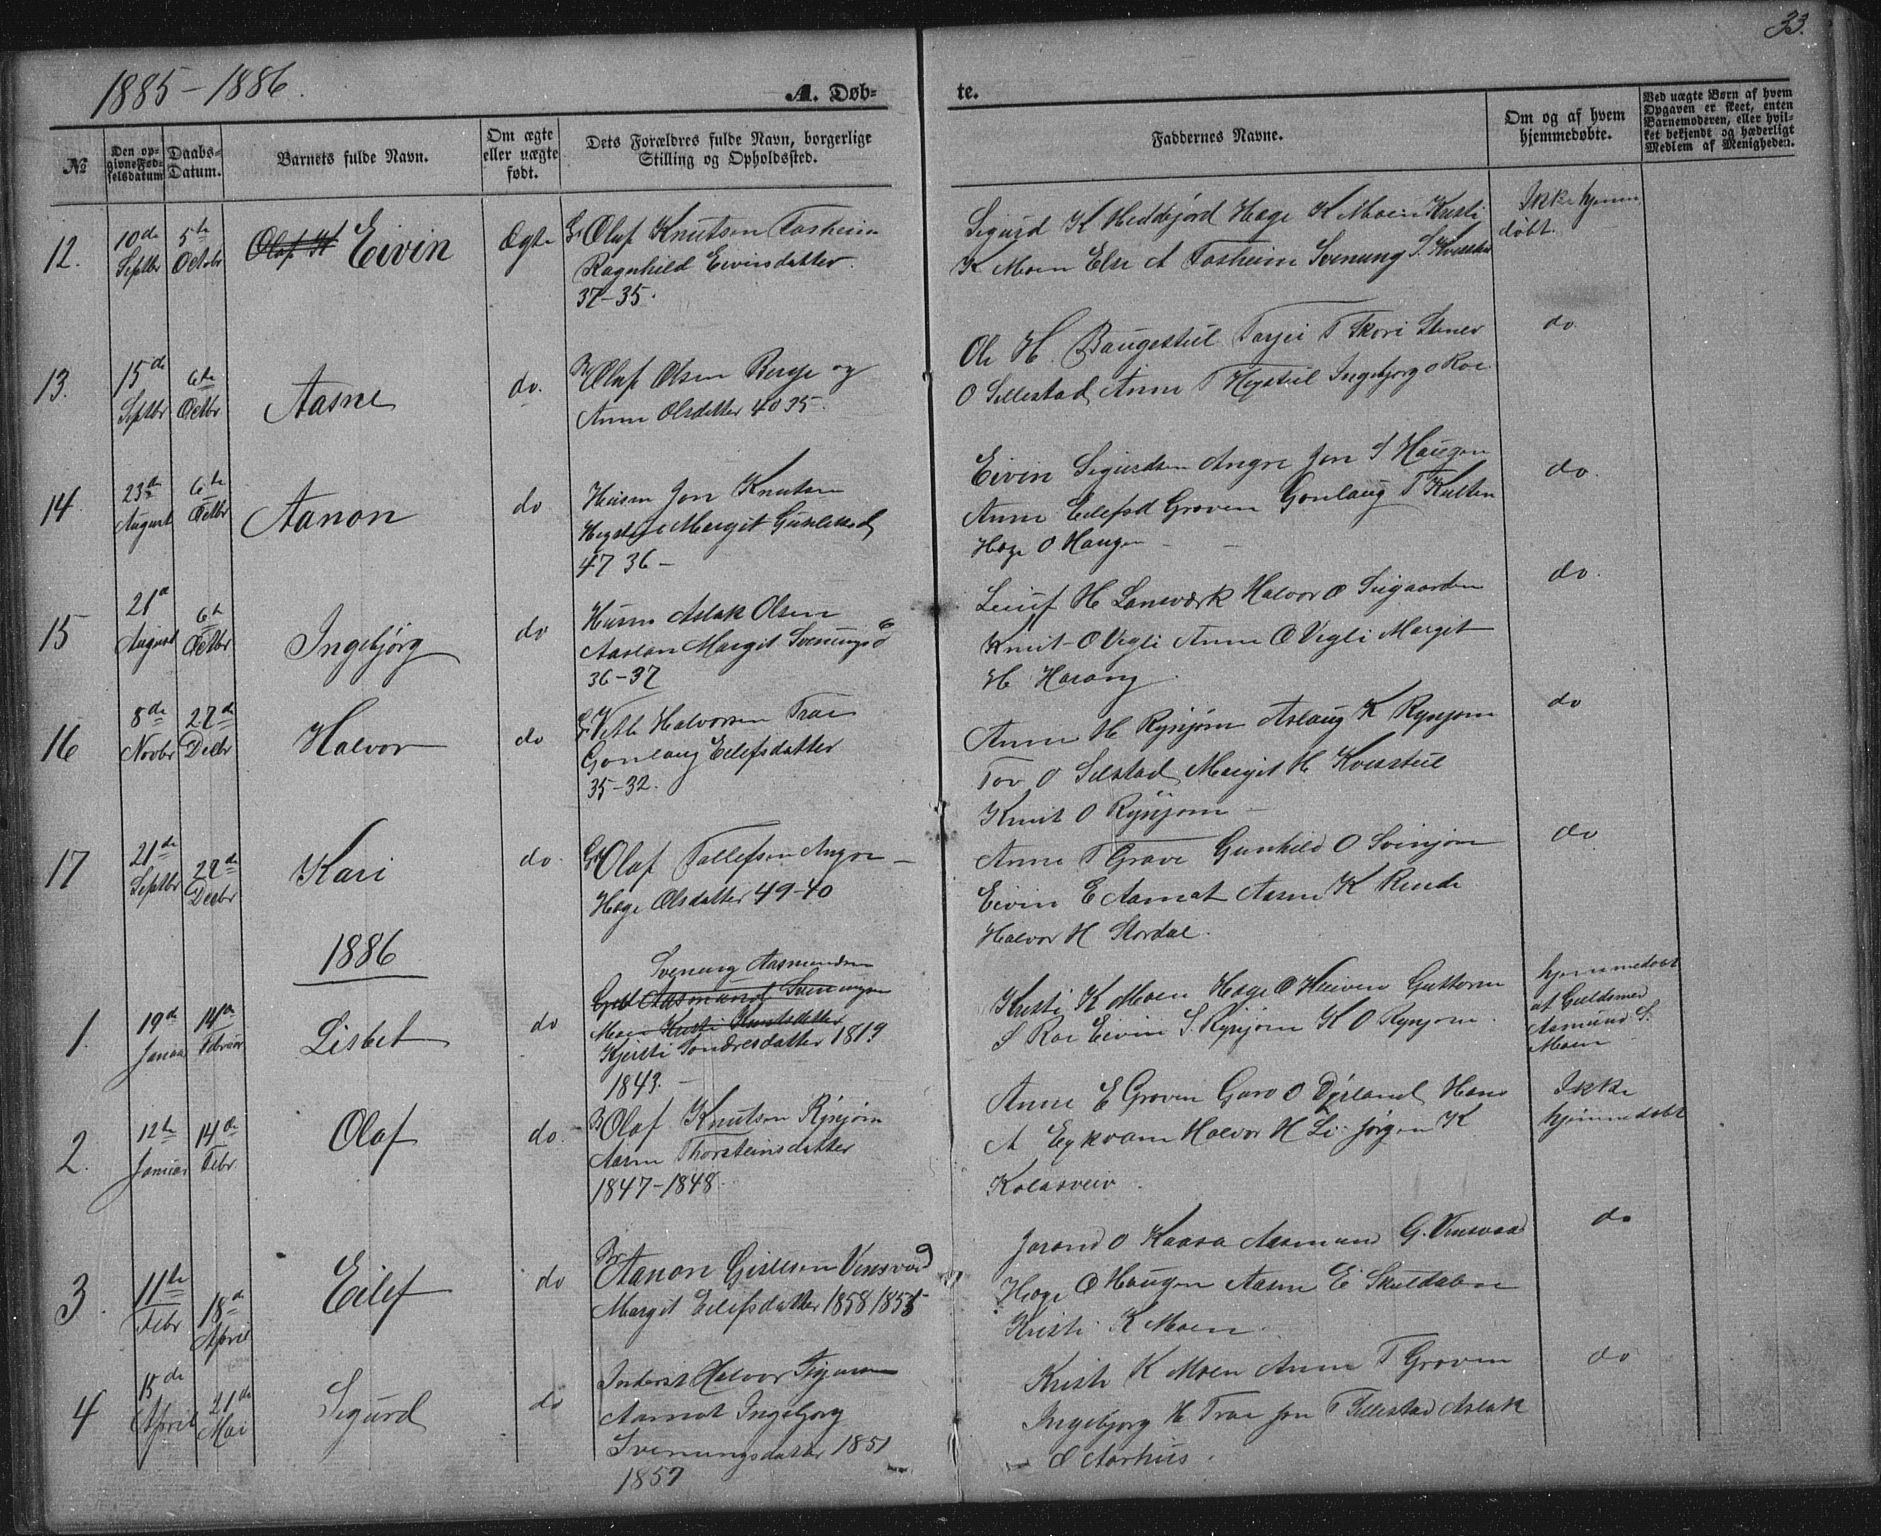 33.
1885-1886.
A. Døb-
te.
No
Den opgivne Fødselsdatum
Daabs-Datum.
Barnets fulde Navn.
Om ægte eller uægte født.
Dets Forældres fulde Navn, borgerlige Stilling og Opholdssted.
Faddernes Navne.
Om og af hvem hjemmedøbte.
Ved uægte Børn af hvem Opgaven er skeet, enten Barnemoderen, eller hvilket bekjendt og hæderligt Medlem af Menigheden.
12. 10de Septbr 5te Octobr Eivin Ægte
Olaf Knutsen Tosheim
Ragnhild Eivinsdatter.
37-35.
Sigurd K Heddejord Hæge K Moen Kristi
K Moen Else A Tosheim Svenung S.
Ikke hjemme
døbt.
13. 15de Septbr 6te Octbr Aasne do.
Olaf Olsen Berge og
Anne Olsdatter 40 35.
Ole H. Baugestul Tarjei T Skori
O Sellestad Anne T Ingebjorg O Roe
do
14. 23de August 6te Octbr Aanon do
Husm Jon Knutsen
Margit
47 36 -
Eivin Sigurdsen Angre Jon S Haugen
Anne Eilefsd Groven Gonlaug T Kulten
Hæge O Haugen
do.
15 21d August 6te Octbr Ingebjørg do
Husm Aslak Olsen
Margit Svenungsd
36-37
H Landsværk Halvor O
Knut O Vegli Anne O Vegli Margit
H
do.
16 8de Novbr 27de Decbr Halvor do
Halvorsen Traa
Gonlaug Eilefsdatter
35-32.
Anne H Rysjøm Aslaug K Rysjom
Tov O Selstad Margit H
Knut O Rysjom
do
17 21de Septbr 27de Decbr Kari do.
Olaf Tollefsen Angre
Hæge Olsdatter 49-40
Anne T Grave Gunhild O
Eivin E Aamot Aasne K Rinde
Halvor H Stordal.
do.
1886
1. 19de Januar 14de Februar Lisbet do
Svenung Aasmundsen
Aasmund Svenungsen
Moen Kristi Knutsdatter
Kjersti Sondresdatter 1819
1843.
Kristi K Moen Hæge O Guttorm
S Roe Eivin S. Rysjøm K O Rysjom.
hjemmedøbt
af Guldsmed
Aasmund S.
Moen
2. 12te Januar 14de Febr Olaf do.
Olaf Knutsen Rysjøm
Aasne Thorsteinsdatter
1847-1848.
Anne E Groven Garo O Dørland Hans
A Eykvam Halvor H Li Jørgen K
Ikke
hjemmedøbt
3. 11te Febr 18d April Eilef do
Aanon Gislesen
Margit Eilefsdatter 1858
Jorand O Kaasa Aasmund G.
Hæge O Haugen Aasne E
Kristi K Moen
do
4 15de April 21de Mai Sigurd do
Inderst Halvor
Aamot Ingebjorg
Svenungsdatter 1851
1857
Kristi K Moen Anne T Groven
Ingebjorg H Traa Jon T Sellestad Aslak
O Aarhus.
do